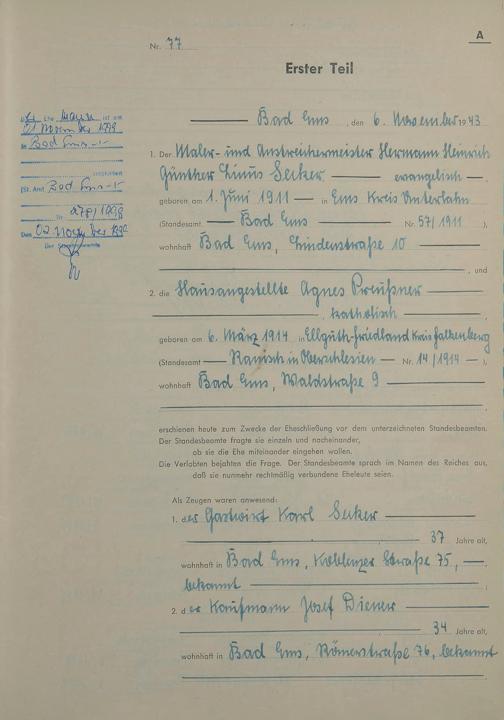 A
Nr. 77
Erster Teil
Bad Ems, den 6. November 1943
1. Der Maler- und Anstreichermeister Hermann Heinrich
Günther Linus Secker — evangelisch —
geboren am 1. Juni 1911 — in Ems Kreis Unterlahn
(Standesamt — Bad Ems — Nr. 57/1911 ),
wohnhaft Bad Ems, Lindenstraße 10
, und
2. die Hausangestellte Agnes Preußner
, katholisch —
geboren am 6. März 1914 in Ellguth-Friedland Kreis Falkenberg
(Standesamt — in Oberschlesien — Nr. 14/1914 — ),
wohnhaft Bad Ems, Waldstraße 9
erschienen heute zum Zwecke der Eheschließung vor dem unterzeichneten Standesbeamten.
Der Standesbeamte fragte sie einzeln und nacheinander,
ob sie die Ehe miteinander eingehen wollen.
Die Verlobten bejahten die Frage. Der Standesbeamte sprach im Namen des Reiches aus,
daß sie nunmehr rechtmäßig verbundene Eheleute seien.
Als Zeugen waren anwesend:
1. der Gastwirt Karl Secker
37 Jahre alt,
wohnhaft in Bad Ems, Koblenzer Straße 75, —
bekannt
2. der Kaufmann Josef Diener
34 Jahre alt,
wohnhaft in Bad Ems, Römerstraße 76, bekannt
Ehemann ist am
in Bad Ems
verstorben
(St. Amt Bad Ems
Nr. 278/1998
Den 02. November
Der Standesbeamte